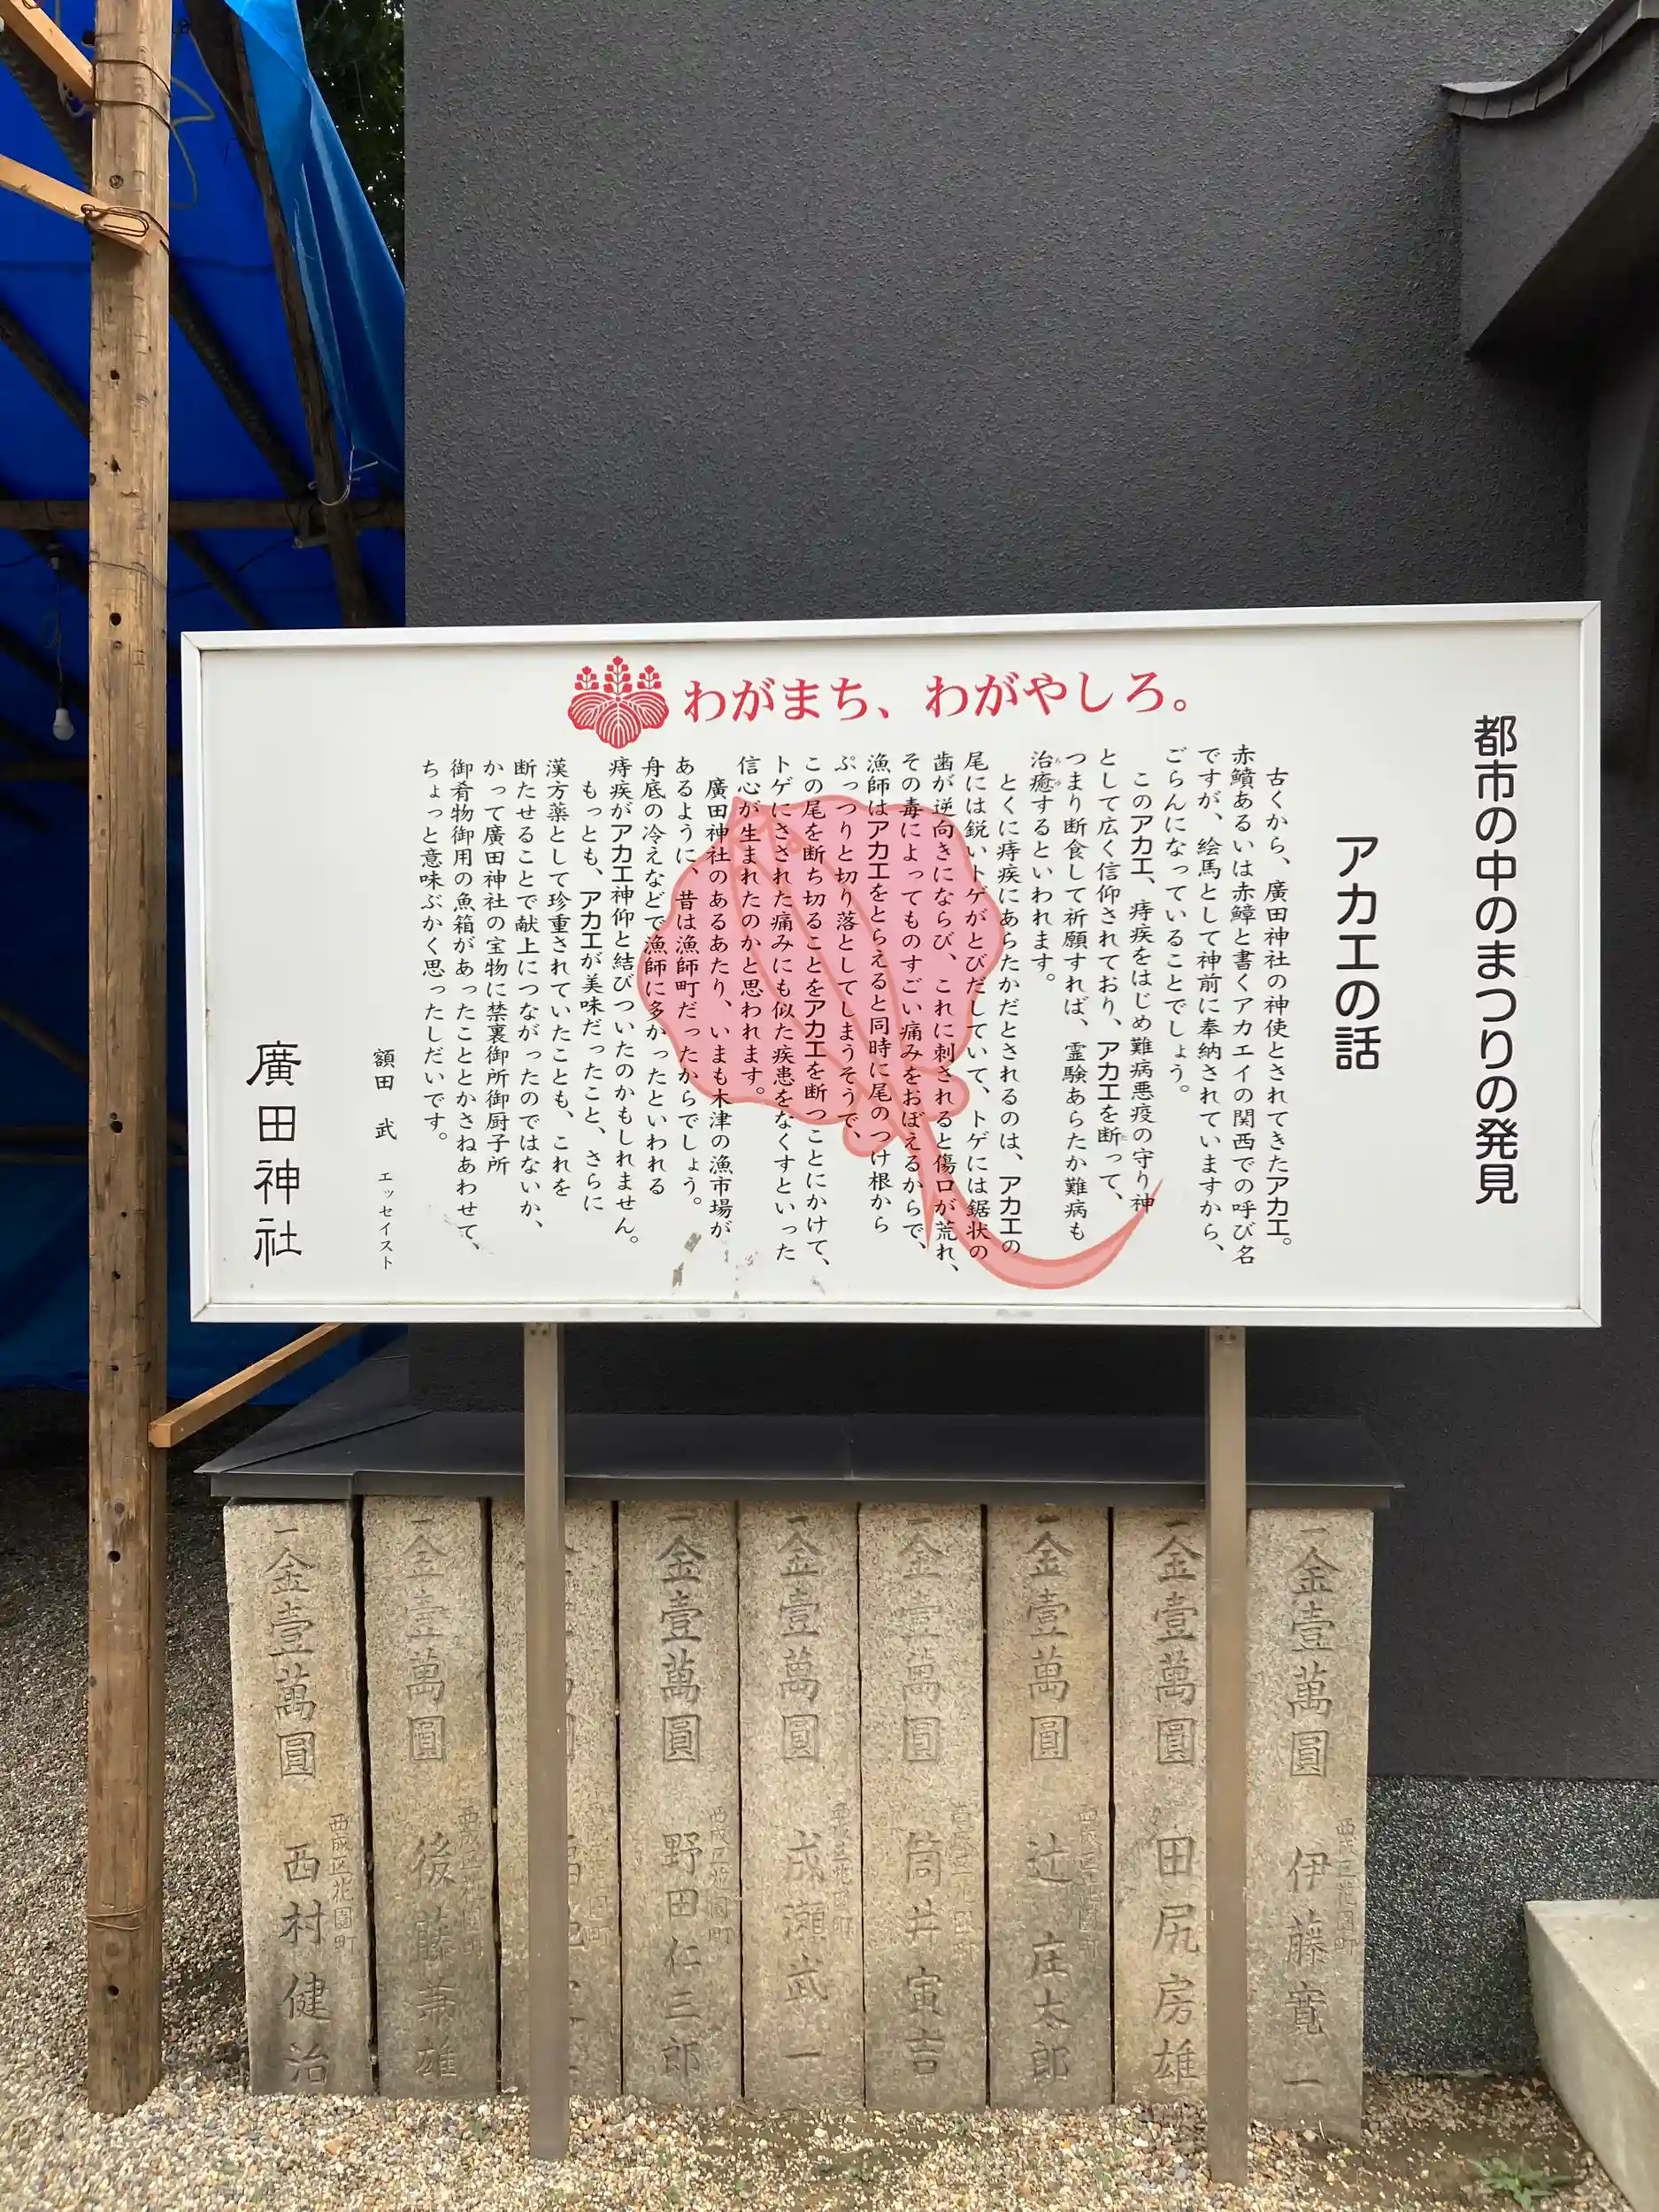 わがまち、わがやしろ。
都市の中のまつりの発見
アカエの話
古くから、廣田神社の神使とされてきたアカエ。
赤鱝あるいは赤鱏と書くアカエイの関西での呼び名
ですが、絵馬として神前に奉納されていますから、
ごらんになっていることでしょう。
このアカエ、痔疾をはじめ難病悪疫の守り神
として広く信仰されており、アカエを断って、
つまり断食して祈願すれば、霊験あらたか難病も
治癒するといわれます。
とくに痔疾にあらたかだとされるのは、アカエの
尾には鋭いトゲがとびだしていて、トゲには鋸状の
歯が逆向きにならび、これに刺されると傷口が荒れ、
その毒によってものすごい痛みをおぼえるからで、
漁師はアカエをとらえると同時に尾のつけ根から
ぷっつりと切り落としてしまうそうで、
この尾を断ち切ることをアカエを断つことにかけて、
トゲにさされた痛みにも似た疾患をなくすといった
信心が生まれたのかと思われます。
廣田神社のあるあたり、いまも木津の漁市場が
あるように、昔は漁師町だったからでしょう。
舟底の冷えなどで漁師に多かったといわれる
痔疾がアカエ神仰と結びついたのかもしれません。
もっとも、アカエが美味だったこと、さらに
漢方薬として珍重されていたことも、これを
断たせることで献上につながったのではないか、
かって廣田神社の宝物に禁裏御所御厨子所
御肴物御用の魚箱があったこととかさねあわせて、
ちょっと意味ぶかく思ったしだいです。
額田 武 エッセイスト
廣田神社
一金壹萬圓 西成区花園町 伊藤寛一
一金壹萬圓 田尻房雄
一金壹萬圓 西成区花園町 辻 庄太郎
一金壹萬圓 筒井寅吉
一金壹萬圓 成瀬武一
一金壹萬圓 西成区花園町 野田仁三郎
一金壹萬圓 西成区花園町 後藤兼雄
一金壹萬圓 西成区花園町 西村健治